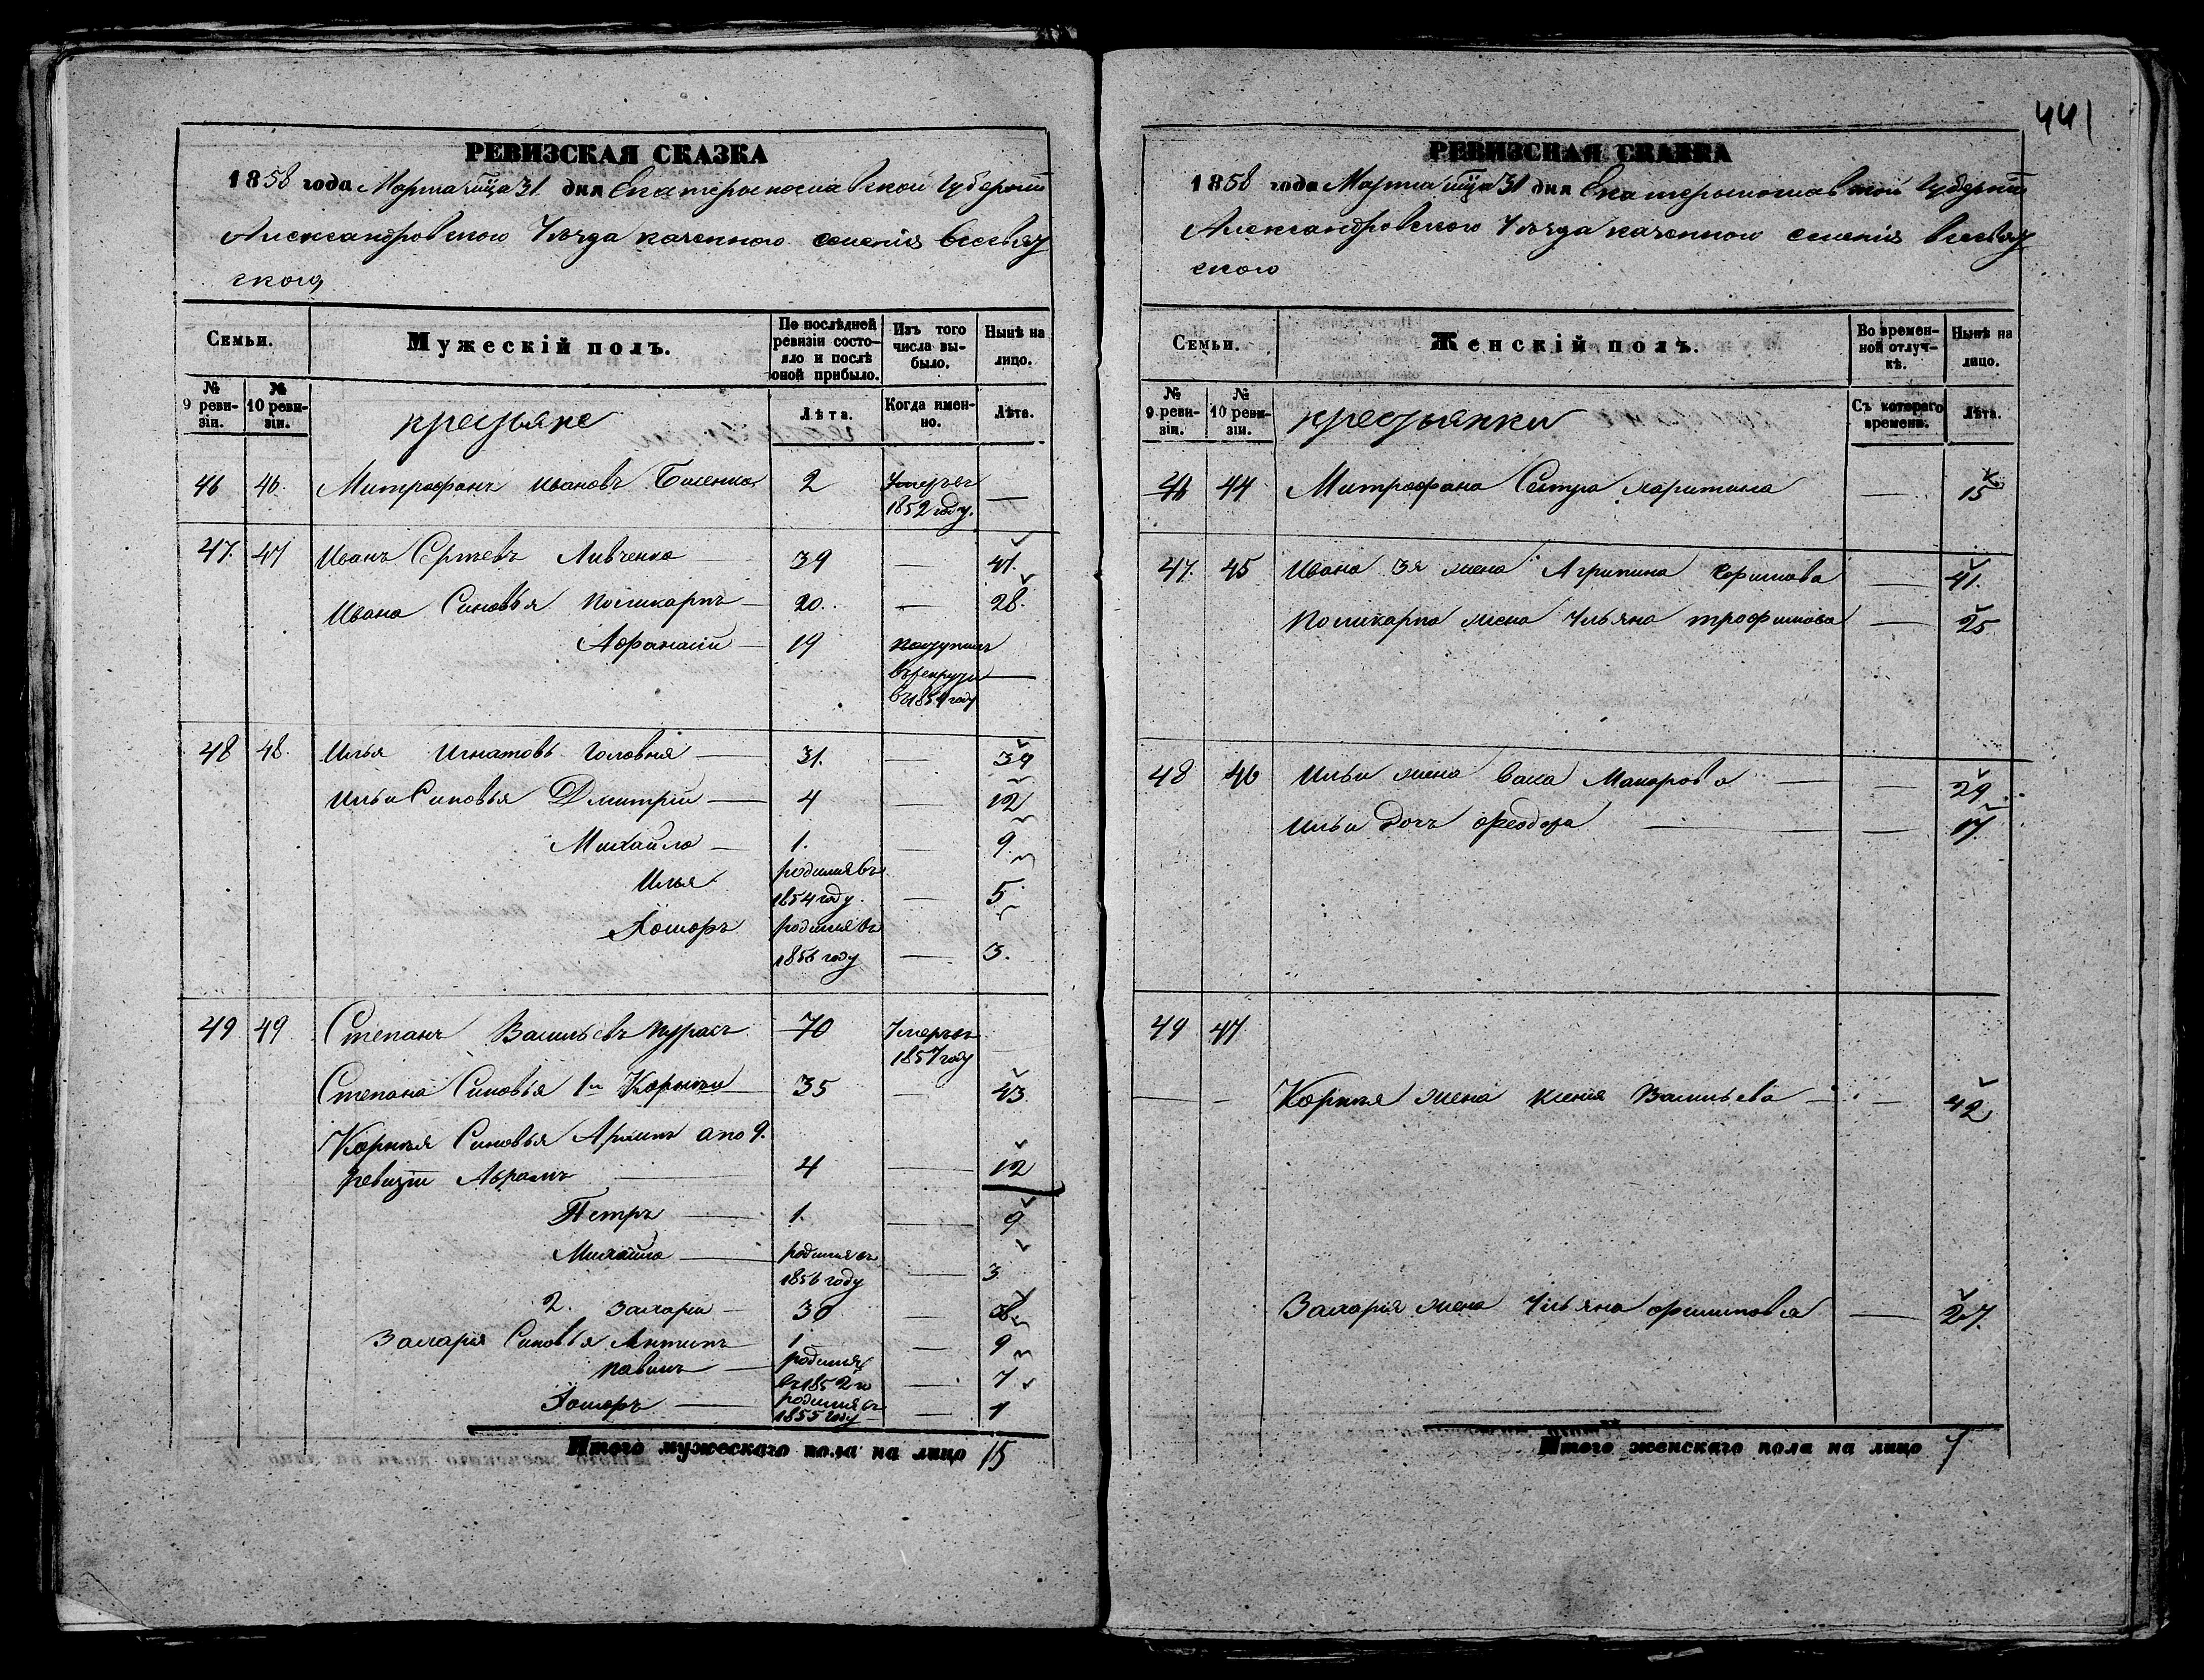 РЕВИЗСКАЯ СКАЗКА
1858 года Марта мца 31 дня Екатеринославской Губернiи
Александровского Уезда казенного селенiя Всесвяц
ского
Семьи.
Мужескiй полъ.
По послѣдней ревизiи состояло и послѣ оной прибыло.
Изъ того числа выбыло.
Нынѣ на лицо.
№ 9 ревизiи.
№ 10 ревизiи.
крестьяне
Лѣта.
Когда именно.
Лѣта.
46 46. Митрофанъ Ивановъ 2 Умеръ въ 1852 году. —
47. 47 Иванъ Сергѣевъ Ливченко 39 — 47.
Ивана Синовья Поликарпъ — 20. — 28.
Афанасiй — 19 поступилъ
въ рекруты —
въ 1854 году
48 48. Илья Игнатовъ Головня — 31. — 39
Ильи Синовья Дмитрiй — 4 — 12
Михайло — 1. — 9
Илья родился въ
1854 году. — 5
родился въ
1856 году — 3.
49 49 Степанъ Васильевъ 70 Умеръ въ
1857 году
Степана Синовья 1й Корнѣй 35 — 43.
Корнѣя Синовья а по 9.
ревизiи Абрамъ — 4 — 12
Петръ — 1. — 9
Михайло — родился въ
1856 году — 3
2. Захарiй — 30 — 38
Захарiя Синовья Антипъ 1. — 9
— родился
въ 1852 г — 7
— родился въ
1855 году —
Итого мужескаго пола на лицо 15
441
РЕВИЗСКАЯ СКАЗКА
1858 года Марта мца 31 дня Екатеринославской Губернiи
Александровского Уезда казенного селенiя Всесвяц
ского
Семьи.
Женскiй полъ.
Во временной отлучкѣ.
Нынѣ на лицо.
№ 9 ревизiи.
№ 10 ревизiи.
крестьянки
Съ котораго времени.
Лѣта.
46 44 Митрофана Сестра Харитина — 15
47. 45 Ивана 3я жена Агрипина — 47.
Поликарпа жена Ульяна Трофимова — 25
48 46 Ильи жена Макарова — 29.
Ильи дочь Феодора — 17.
49 47.
— — Корнѣя жена Ксенiя Васильева — 42
Захарiя жена Ульяна Филипова — 27.
Итого женскаго пола на лицо 7